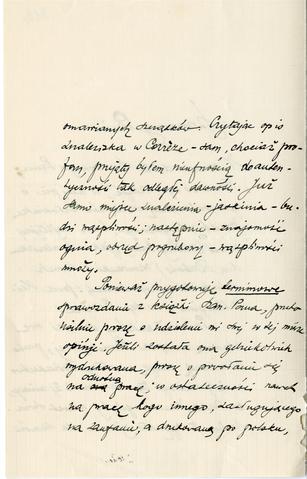 omawianych szczątków. Czytając opis
znaleziska w Corrèze - sam, chociaż pro-
fan, przejęty byłem nieufnością do auten-
tyczności tak odległej dawności. Już
samo miejsce znalezienia - jaskinia - bu-
dzi wątpliwości; następnie - znajomość
ognia, obrzęd pogrzebowy - wątpliwości
mnoży.
Ponieważ przygotowuję terminowe
sprawozdanie z książki Szan. Pana, przeto
usilnie proszę o udzielenie mi dziś w tej mierze
opinji. Jeśli została ona gdziekolwiek
wydrukowana, proszę o powołanie się
na odnośną pracę; w ostateczności nawet
na pracę kogo innego, zasługującego
na zaufanie, a drukowaną po polsku,